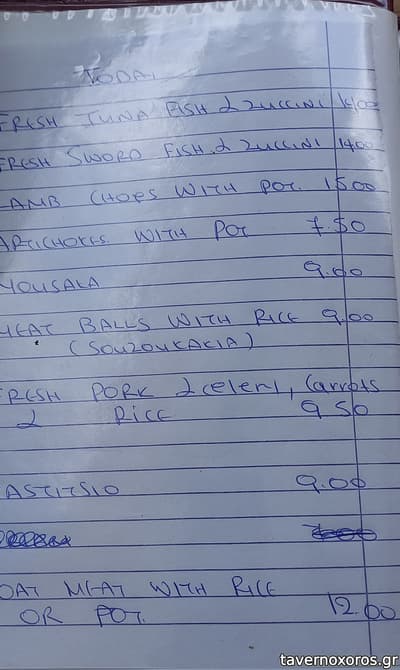 TODAY
FRESH TUNA FISH & ZUCCINI 14,00
FRESH SWORD FISH & ZUCCINI 14,00
LAMB CHOPS WITH POT. 15,00
ARTICHOKES WITH POT 7.50
MOUSAKA 9.00
MEAT BALLS WITH RICE 9,00
(SOUZOUKAKIA)
FRESH PORK & celeri, Carrots
& RICE 9.50
PASTITSIO 9.00
OAT MEAT WITH RICE
OR POT. 12.00
tavernoxoros.gr